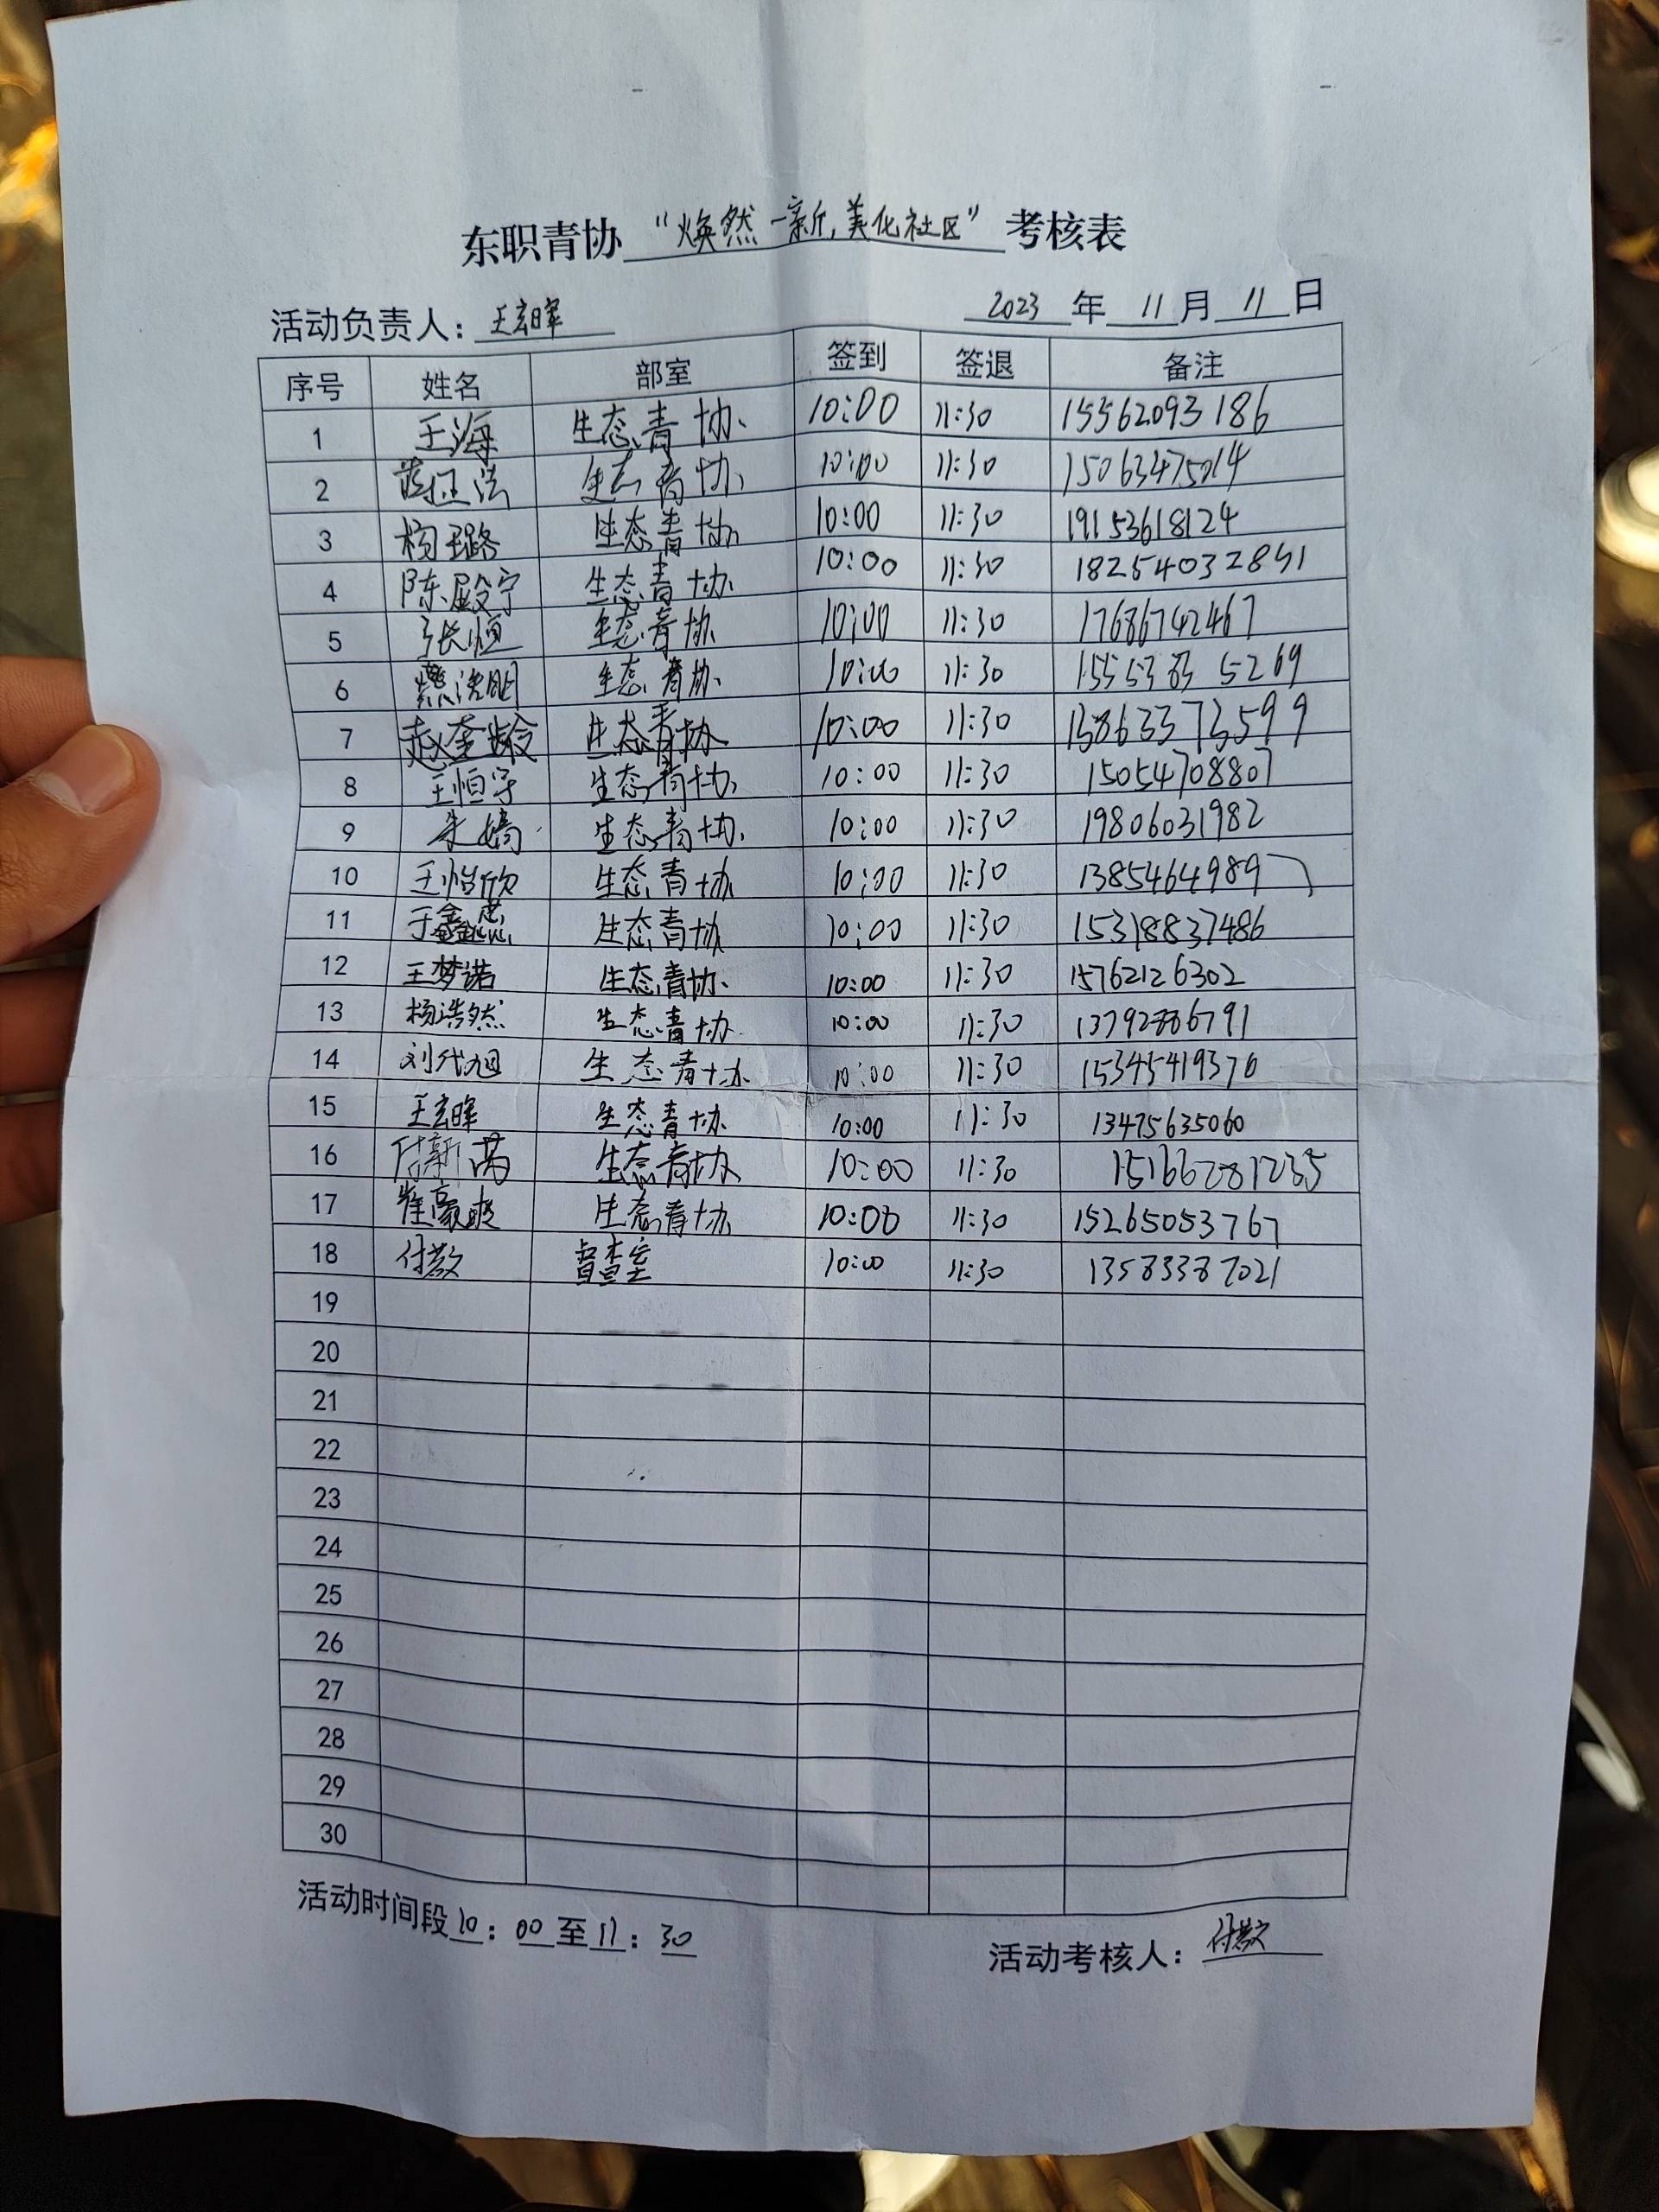 东职青协“焕然一新,美化社区”考核表
活动负责人：王玄晖 2023 年 11 月 11 日
序号 姓名 部室 签到 签退 备注
1 王海 生态青协 10:00 11:30 15562093186
2 生态青协 10:00 11:30 15063475014
3 杨璐 生态青协 10:00 11:30 19153618124
4 陈殿宁 生态青协 10:00 11:30 18254032851
5 张恒 生态青协 10:00 11:30 17686742467
6 生态青协 10:00 11:30
7 赵奎龄 生态青协 10:00 11:30 13863373599
8 王恒宇 生态青协 10:00 11:30 15054708807
9 朱嫱 生态青协 10:00 11:30 19806031982
10 王怡欣 生态青协 10:00 11:30
11 于鑫蕊 生态青协 10:00 11:30 15318837486
12 王梦诺 生态青协 10:00 11:30 15762126302
13 杨浩然 生态青协 10:00 11:30
14 刘代旭 生态青协 10:00 11:30 15345419376
15 王玄晖 生态青协 10:00 11:30 13475635060
16 付新苒 生态青协 10:00 11:30 15166281235
17 崔豪爽 生态青协 10:00 11:30 15265053767
18 督查室 10:00 11:30 13583387021
19
20
21
22
23
24
25
26
27
28
29
30
活动时间段 10：00 至 11：30
活动考核人：